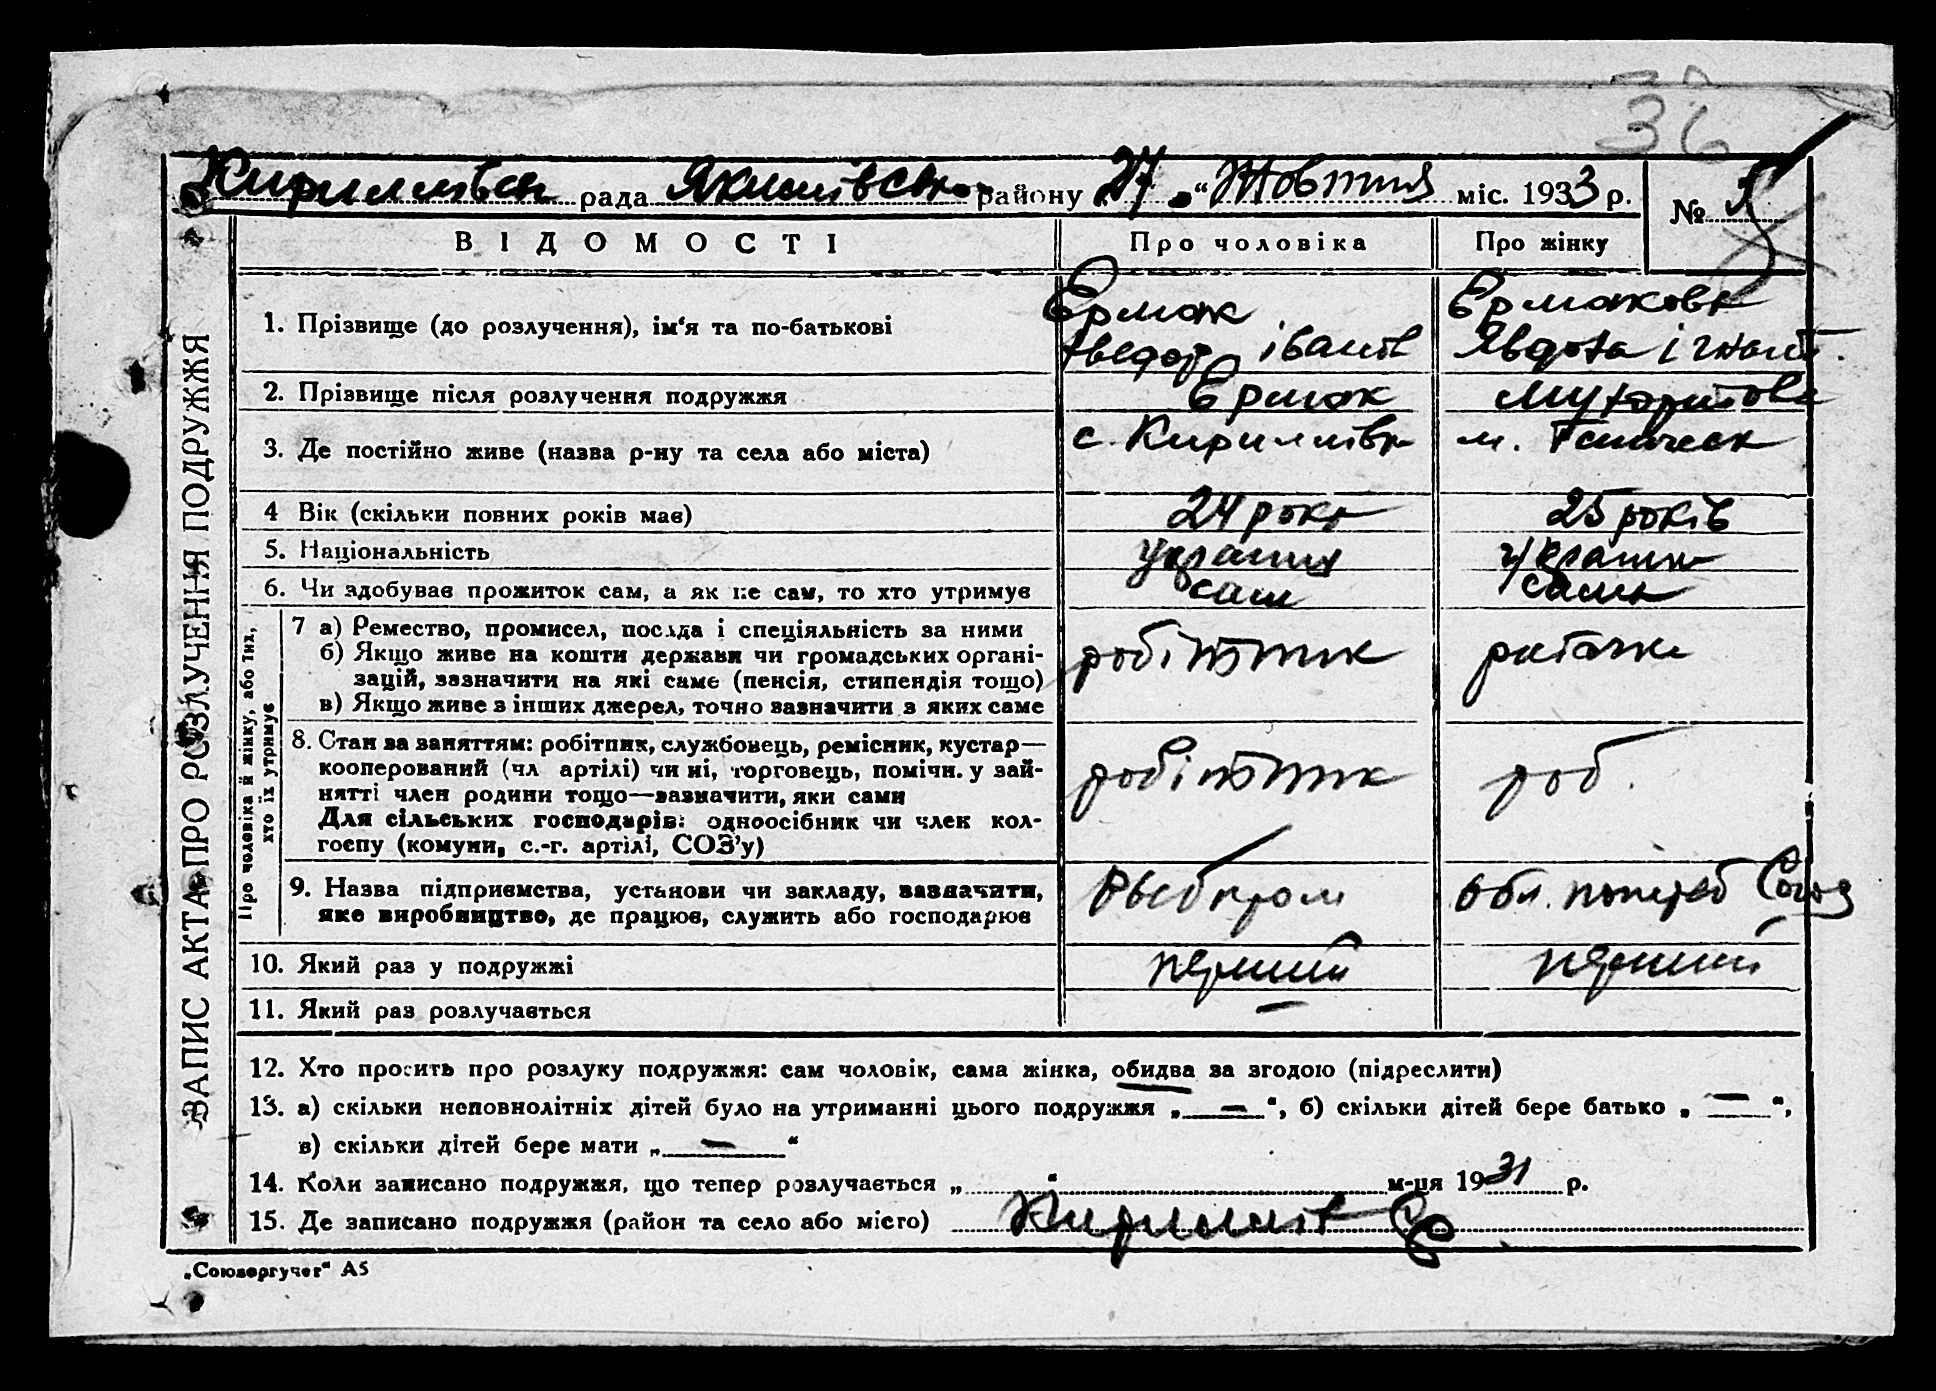 36
Кирилівська рада Якимівського району 27 „ “ Жовтня міс. 1933 р.
№ 5
ВІДОМОСТІ Про чоловіка Про жінку
ЗАПИС АКТА ПРО РОЗЛУЧЕННЯ ПОДРУЖЖЯ
1. Прізвище (до розлучення), ім‘я та по-батькові
Єрмак
Єрмакова
Іванов
Явдоха Ігнат.
2. Прізвище після розлучення подружжя Єрмак
3. Де постійно живе (назва р-ну та села або міста) с. Кирилівка м. Геническ
4 Вік (скільки повних років має) 24 роки 25 років
5. Національність україн україн
6. Чи здобував прожиток сам, а як не сам, то хто утримує сам сама
Про чоловіка й жінку, або тих,
хто їх утримує
7 а) Ремество, промисел, посада і спеціяльність за ними
б) Якщо живе на кошти держави чи громадських органі-
зацій, зазначити на які саме (пенсія, стипендія тощо)
в) Якщо живе з інших джерел, точно зазначити з яких саме
робітник
8. Стан за заняттям: робітник, службовець, ремісник, кустар—
кооперований (чл артілі) чи ні, торговець, помічн. у зай-
нятті член родини тощо—зазначити, яки сами
Для сільських господарів: одноосібник чи член кол-
госпу (комуни, с.-г. артілі, СОЗ’у)
робітник роб.
9. Назва підприємства, установи чи закладу, зазначити,
яке виробництво, де працює, служить або господарює
Рыбпром Обл. Союз
10. Який раз у подружжі перший перший
11. Який раз розлучається —
12. Хто просить про розлуку подружжя: сам чоловік, сама жінка, обидва за згодою (підреслити)
13. а) скільки неповнолітніх дітей було на утриманні цього подружжя „ — “, б) скільки дітей бере батько „ — “,
в) скільки дітей бере мати „ — “
14. Коли записано подружжя, що тепер розлучається „ “ м-ця 1931 р.
15. Де записано подружжя (район та село або місто)
„Союзоргучет“ А5